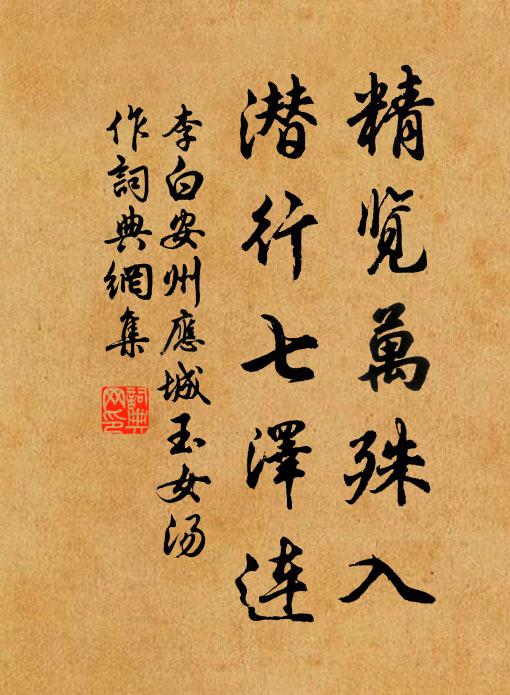 精览萬殊入
潜行七澤連
李白安州應城玉女汤
作詞典網集
詞典
网印